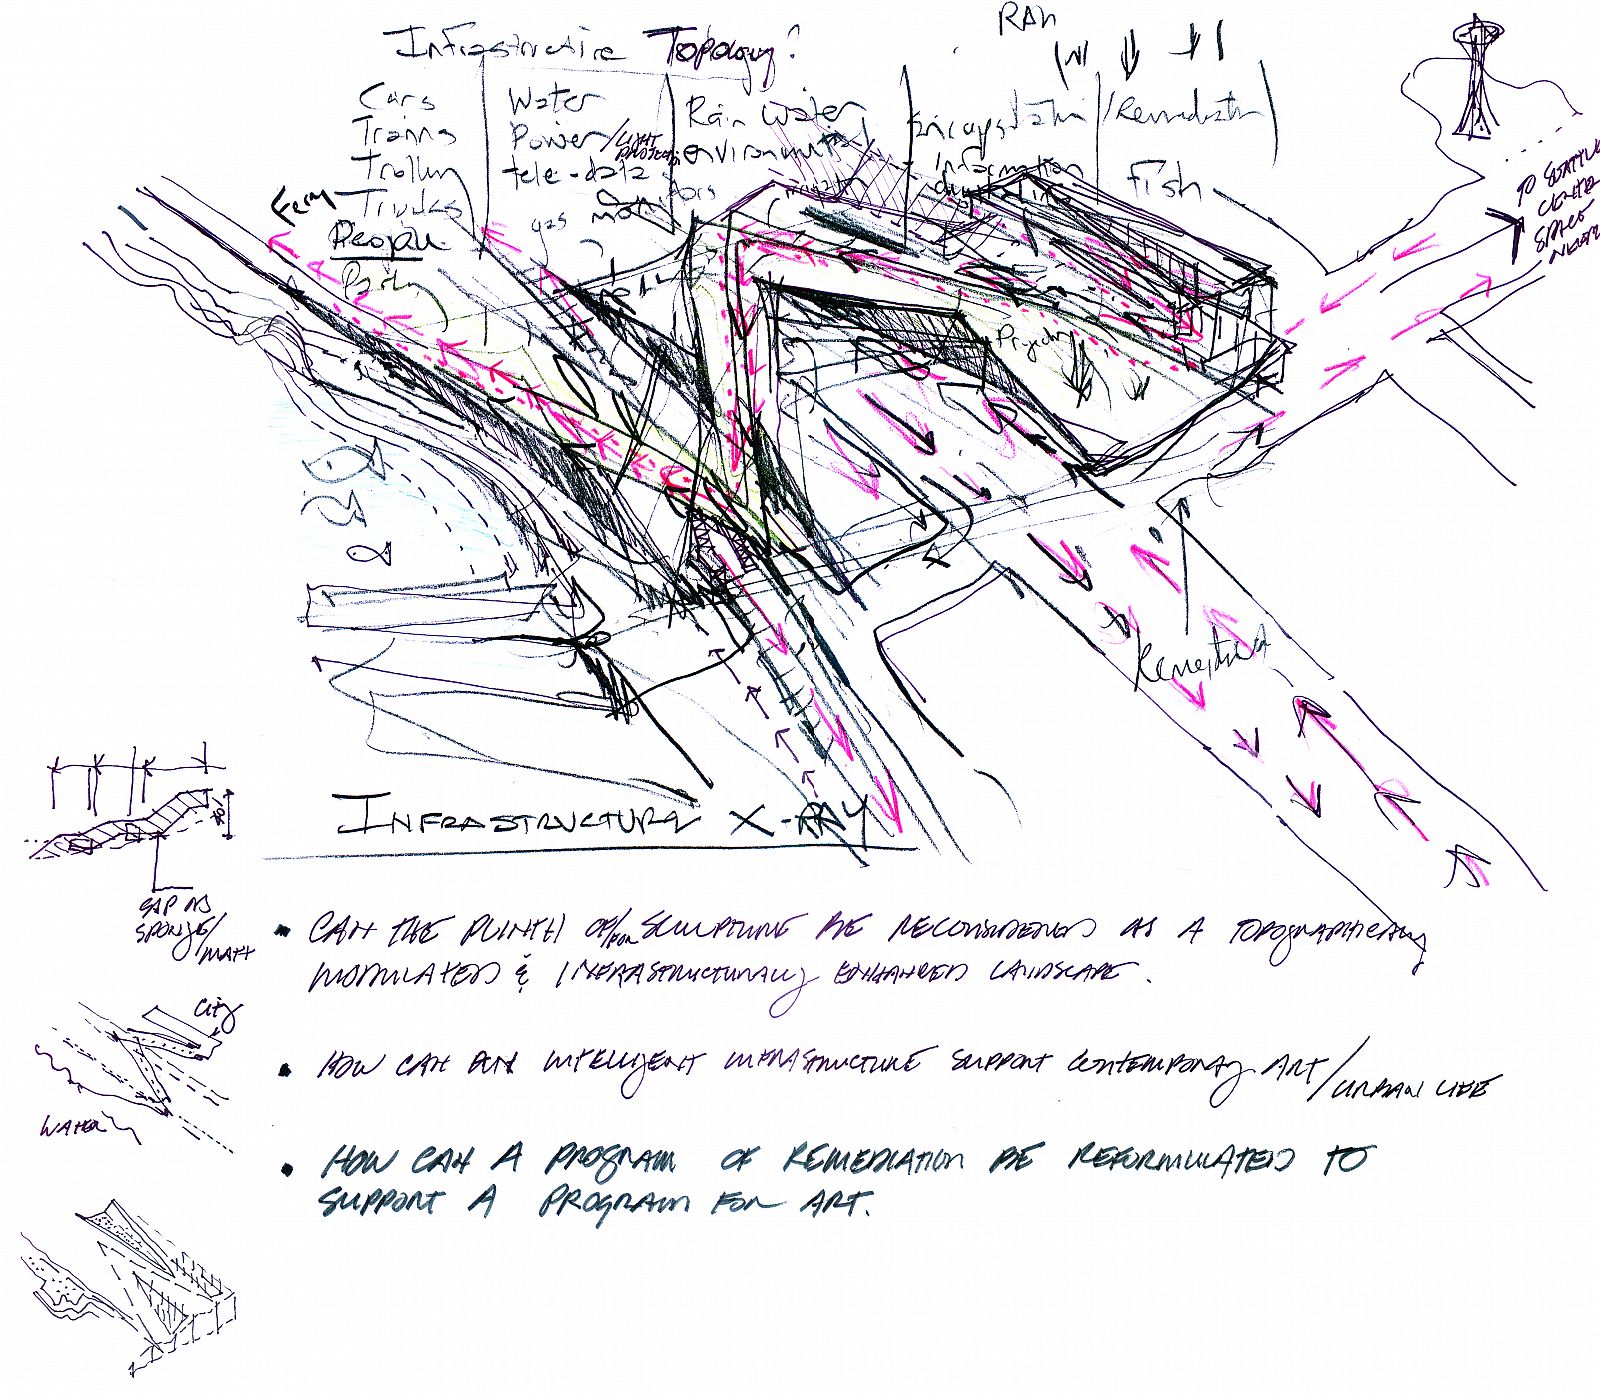 RAIN
Infrastructure Topology?
Cars
Trains
Trolley
Trucks
People
Ferry
Water
Power/LIGHT
tele-data
gas
Rain Water
environmental
Encapsulation
information
/Remediation
Fish
TO SEATTLE
CENTER
SPACE
NEEDLE
Projection
INFRASTRUCTURE X-RAY
CAP AS
SPONGE/
MATT
• CAN THE PLINTH OF/FOR SCULPTURE BE RECONSIDERED AS A TOPOGRAPHICALLY
MODULATED & INFRASTRUCTURALLY ENHANCED LANDSCAPE.
City
WATER
• HOW CAN AN INTELLIGENT INFRASTRUCTURE SUPPORT CONTEMPORARY ART/URBAN LIFE
• HOW CAN A PROGRAM OF REMEDIATION BE REFORMULATED TO
SUPPORT A PROGRAM FOR ART.